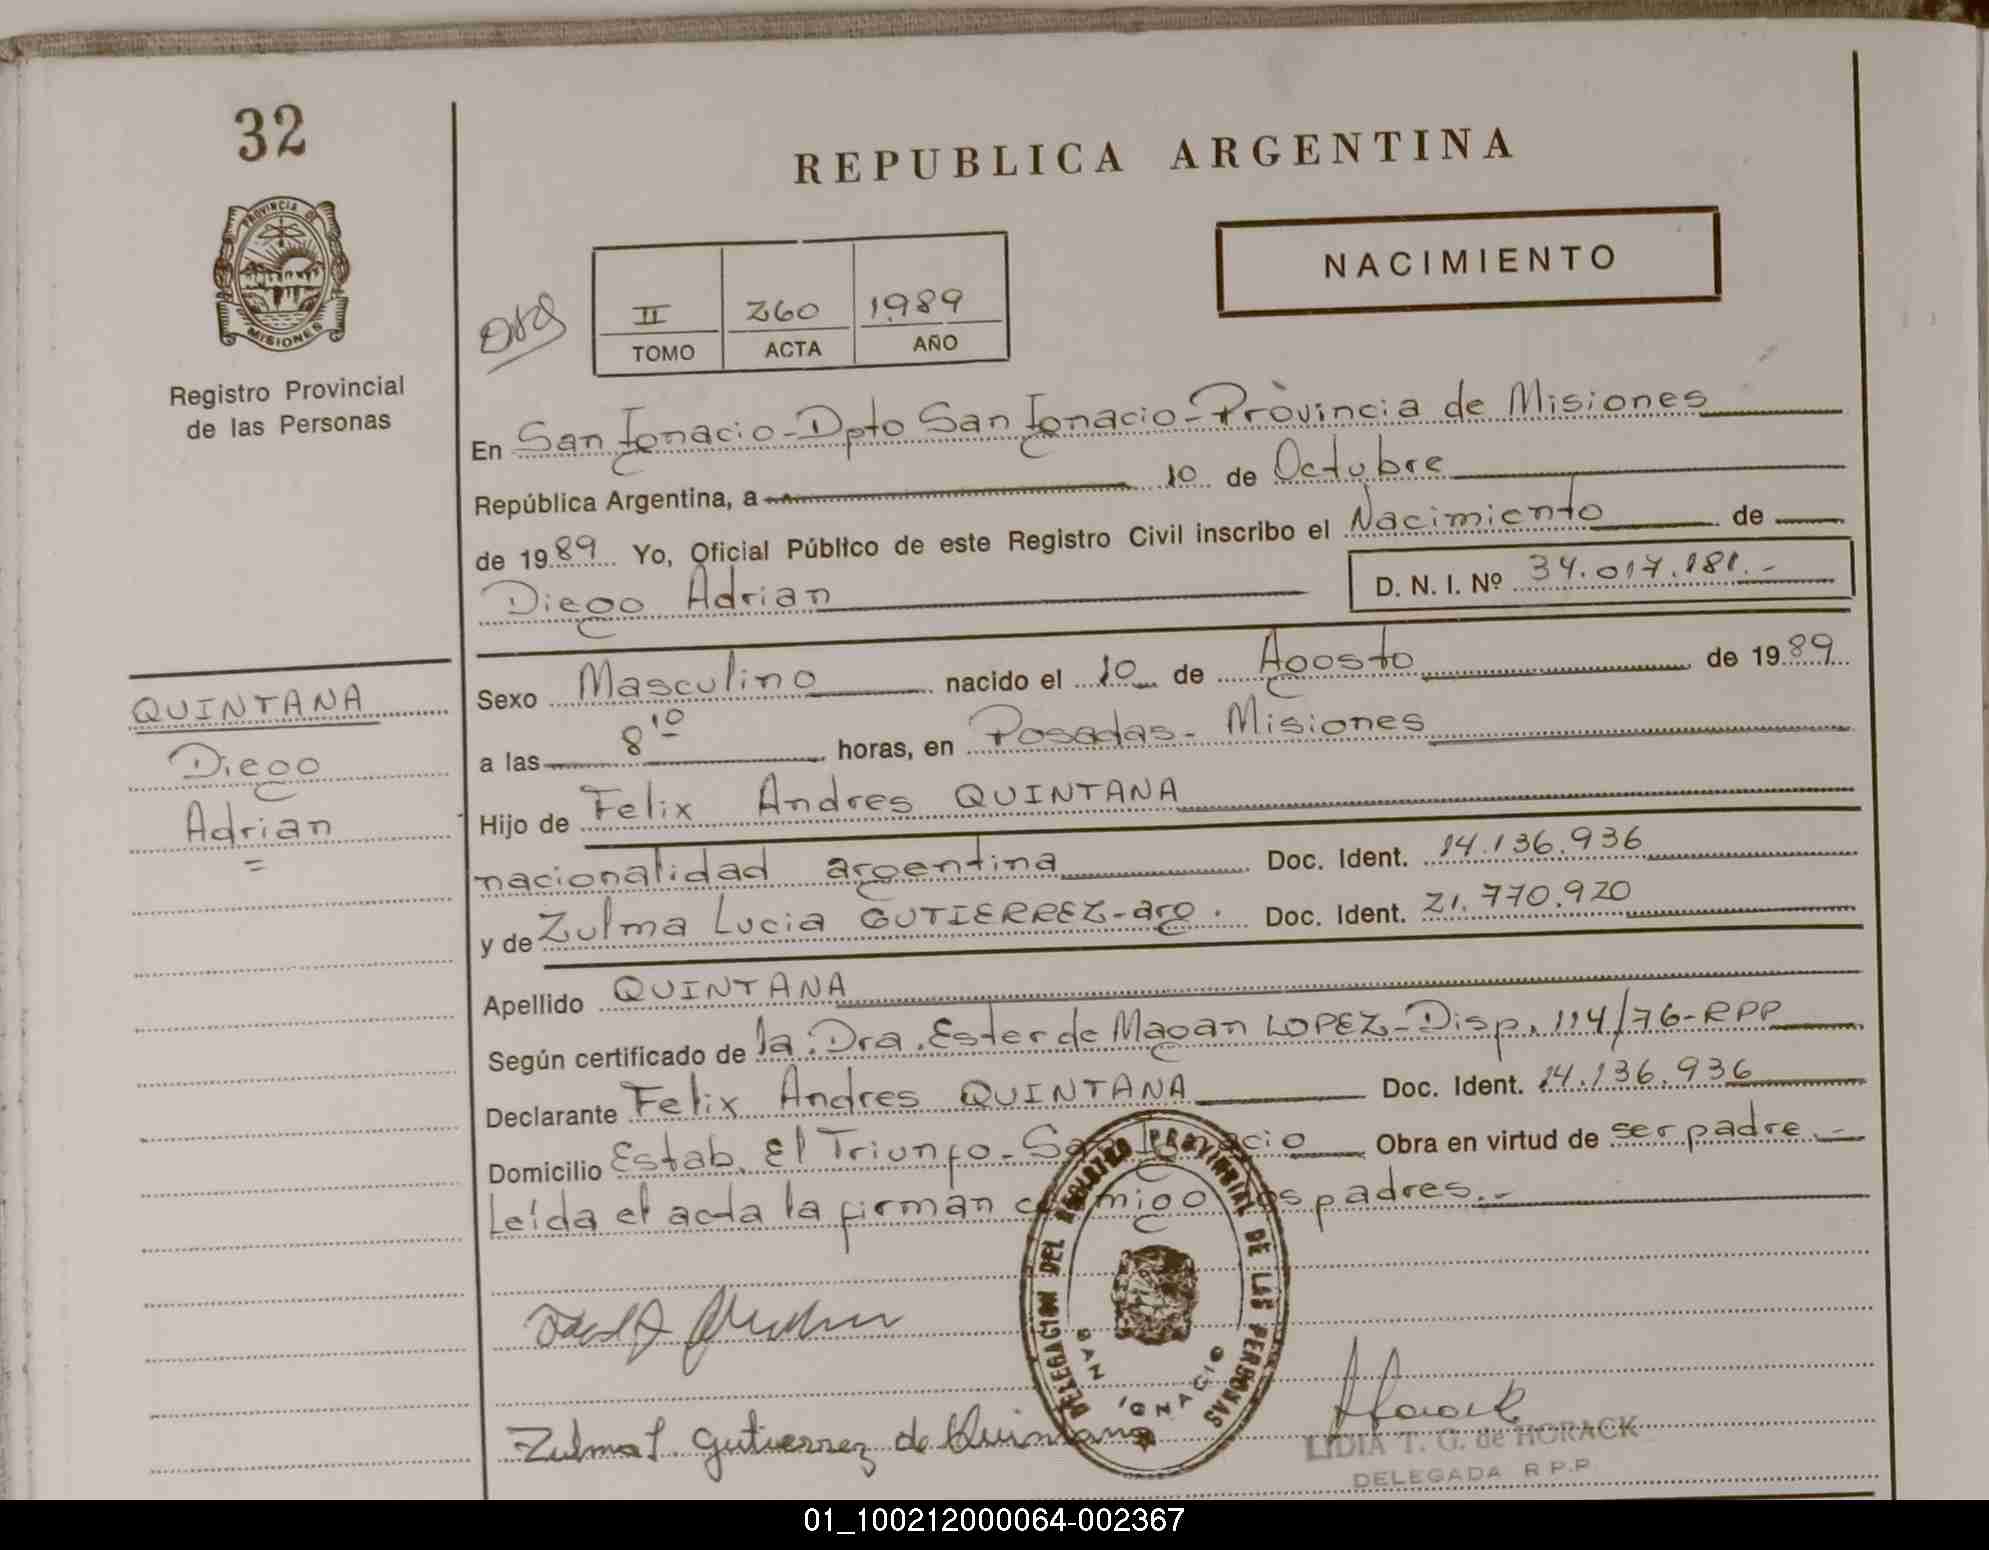 32
REPUBLICA ARGENTINA
PROVINCIA DE
MISIONES
Registro Provincial
de las Personas
NACIMIENTO
II 260 1989
TOMO ACTA AÑO
En San Ignacio - Dpto San Ignacio - Provincia de Misiones
República Argentina, a 10 de Octubre
de 1989 Yo, Oficial Público de este Registro Civil inscribo el Nacimiento de
Diego Adrian D. N. I. Nº 34.017.181.-
QUINTANA
Diego
Adrian
=
Sexo Masculino nacido el 10 de Agosto de 1989
a las 8 10 horas, en Posadas - Misiones
Hijo de Felix Andres QUINTANA
nacionalidad argentina Doc. Ident. 14.136.936
y de Zulma Lucia GUTIERREZ - arg. Doc. Ident. 21.770.920
Apellido QUINTANA
Según certificado de la Dra. Ester de Magan LOPEZ - Disp. 114/76 - RPP
Declarante Felix Andres QUINTANA Doc. Ident. 14.136.936
Domicilio Estab. El Triunfo - San Ignacio Obra en virtud de ser padre.-
Leída el acta la firman conmigo los padres.-
DELEGACION DEL REGISTRO PROVINCIAL DE LAS PERSONAS
SAN IGNACIO
Zulma L. Gutierrez de Quintana
Horack
LIDIA T. G. de HORACK
DELEGADA R.P.P.
01_100212000064-002367